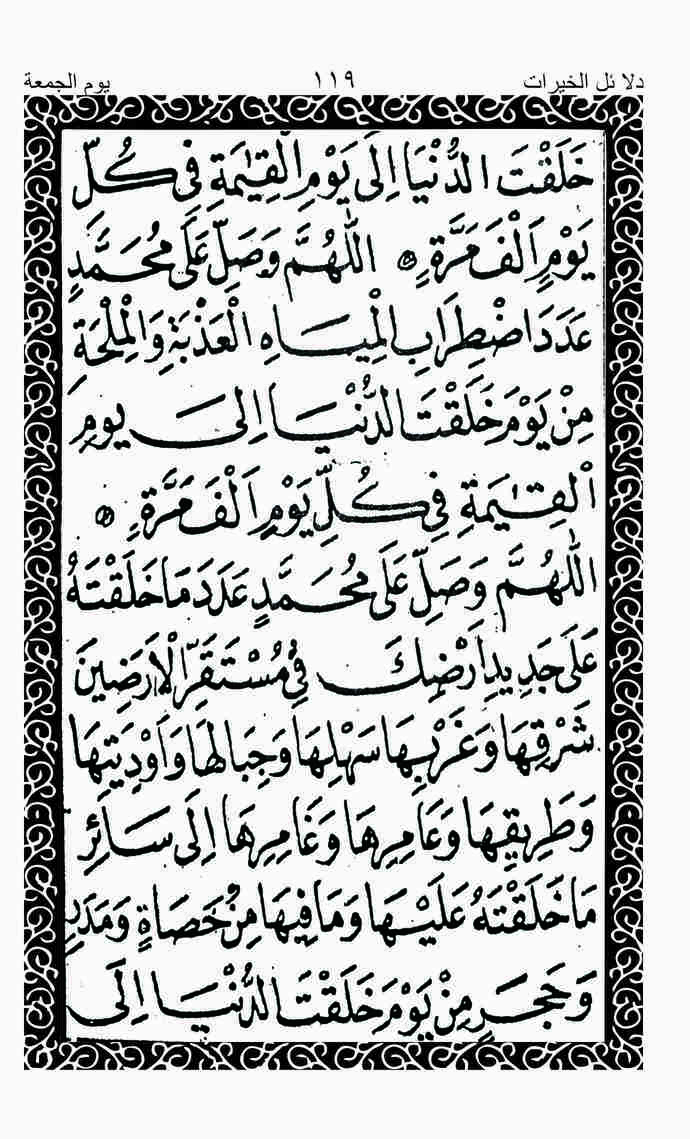 دلائل الخيرات ١١٩ يوم الجمعة
خَلَقْتَ الدُّنْيَا اِلَى يَوْمِ الْقِيٰمَةِ فِي كُلِّ
يَوْمٍ اَلْفَ مَرَّةٍ ۞ اَللّٰهُمَّ وَصَلِّ عَلَى مُحَمَّدٍ
عَدَدَ اضْطِرَابِ الْمِيَاهِ الْعَذْبَةِ وَالْمِلْحَةِ
مِنْ يَوْمَ خَلَقْتَ الدُّنْيَا اِلى يومِ
الْقِيٰمَةِ فِي كُلِّ يَوْمٍ اَلْفَ مَرَّةٍ ۞
اَللّٰهُمَّ وَصَلِّ عَلَى مُحَمَّدٍ عَدَدَ مَا خَلَقْتَهُ
عَلَى جَدِيدِ اَرْضِكَ فِي مُسْتَقَرِّ الْاَرَضِينَ
شَرْقِهَا وَغَرْبِهَا سَهْلِهَا وَجِبَالِهَا وَاَوْدِيَتِهَا
وَطَرِيقِهَا وَعَامِرِهَا وَغَامِرِهَا اِلَى سَائِرِ
مَا خَلَقْتَهُ عَلَيْهَا وَمَا فِيهَا مِنْ حَصَاةٍ وَمَدَرٍ
وَحَجَرٍ مِنْ يَوْمَ خَلَقْتَ الدُّنْيَا اِلَى